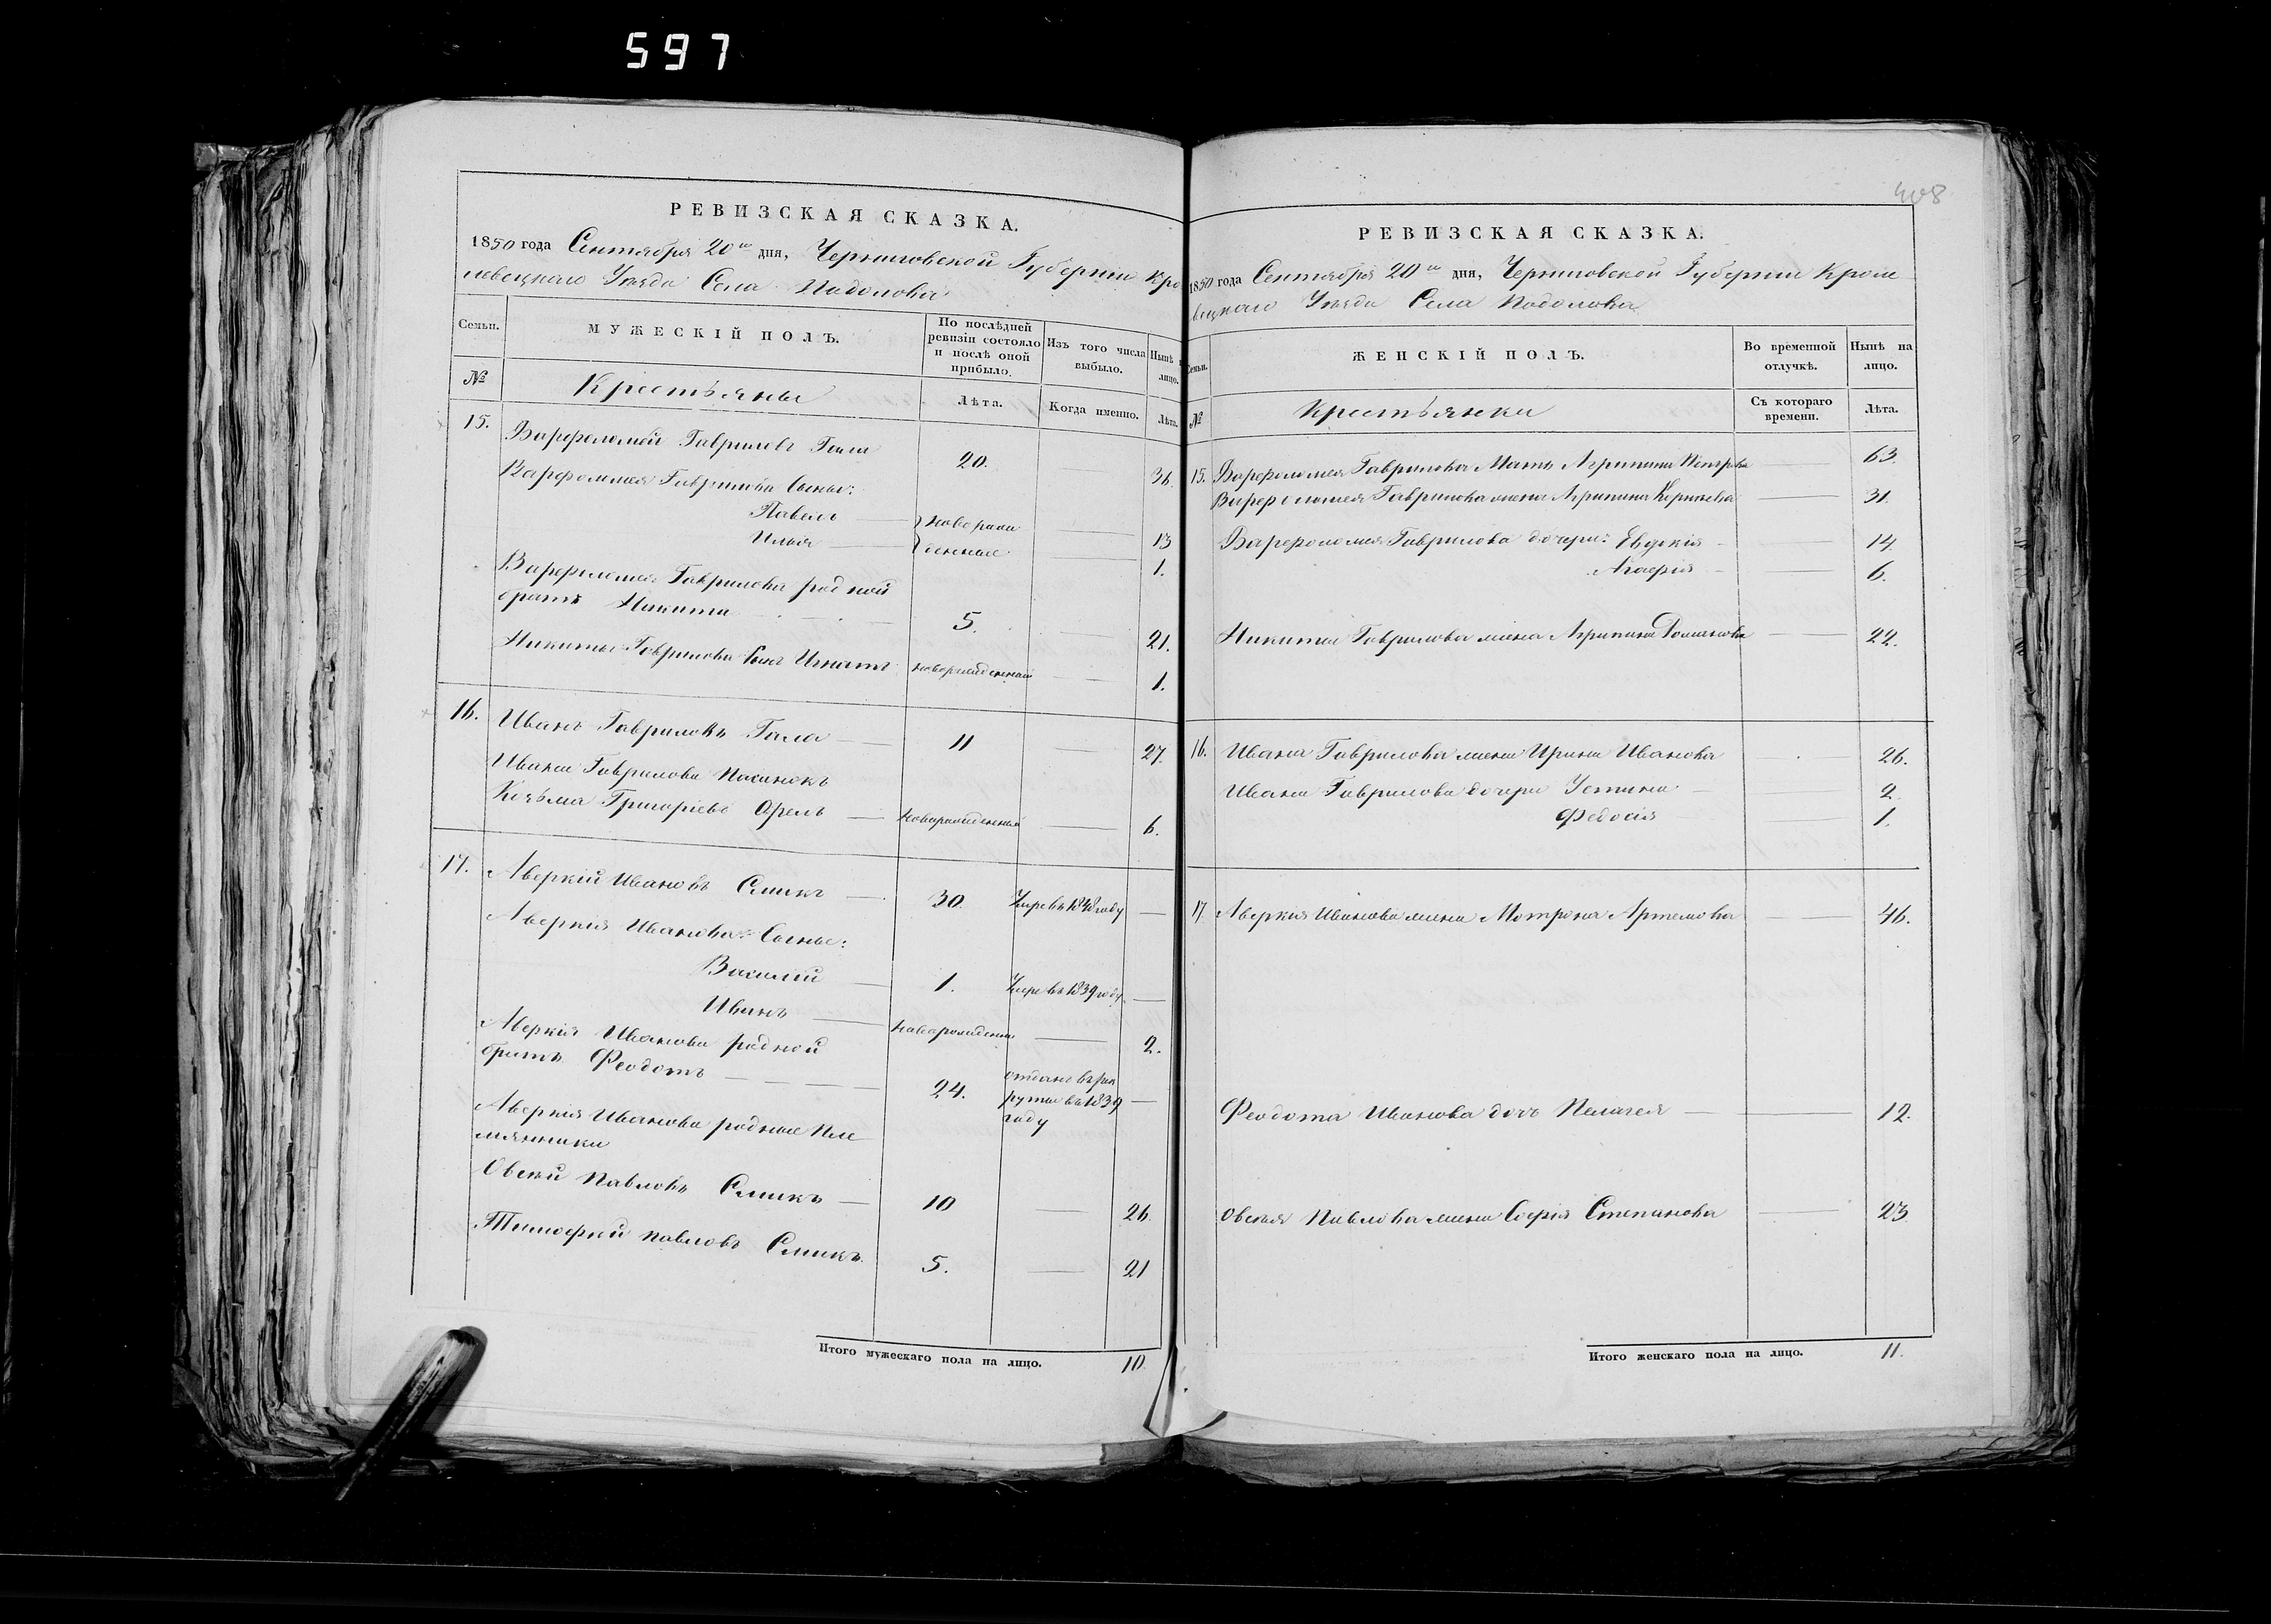 597
РЕВИЗСКАЯ СКАЗКА.
1850 года Сентября 20го дня, Черниговской Губернии Кро
левецкаго Уезда Села Подолова
Семьи.
МУЖЕСКІЙ ПОЛЪ.
По послѣдней ревизіи состояло и послѣ оной прибыло.
Изъ того числа выбыло.
Нынѣ
лицо.
№
Крестьяны
Лѣта.
Когда именно.
Лѣта.
15. Варфоломей Гавриловъ Гала 20. — 36.
Варфоломея Гаврилова Сыны:
Павелъ — новорож — 13
Илья — денные — 1.
Варфоломея Гаврилова родной
братъ Никита — 5. — 21.
Никиты Гаврилова Сынъ Игнатъ новорожденный — 1.
16. Иванъ Гавриловъ Гала — 11 — 27.
Ивана Гаврилова Пасинокъ
Козьма Григорьевъ Орелъ — новорожденный — 6.
17. Аверкій Ивановъ Слинкъ — 30. Умре въ 1848 году —
Аверкія Иванова Сыны:
Василій — 1. Умре въ 1839 году —
Иванъ — новорожденн — 2.
Аверкія Иванова родной
братъ Феодотъ — 24. отданъ въ рек
руты въ 1839 —
году
Аверкія Иванова родные Пле
мянники
Овсей Павловъ Слинкъ — 10 — 26.
Тимофей Павловъ Слинкъ 5. — 21
Итого мужескаго пола на лицо. 10.
408
РЕВИЗСКАЯ СКАЗКА.
1850 года Сентября 20го дня, Черниговской Губернии Кроле
вецкаго Уезда Села Подолова
Семьи.
ЖЕНСКІЙ ПОЛЪ.
Во временной отлучкѣ.
Нынѣ на лицо.
№
Крестьянки
Съ котораго времени.
Лѣта.
15. Варфоломея Гаврилова Мать Агрипина Петрова — 63.
Варфоломея Гаврилова жена Агрипина Корнѣева — 31.
Варфоломея Гаврилова дочери: Евдокія — 14.
Агафія — 6.
Никиты Гаврилова жена Агрипина Романова — 22.
16. Ивана Гаврилова жена Ирина Иванова — 26.
Ивана Гаврилова дочери Устина — 2.
Федосія — 1.
17. Аверкія Иванова жена Мотрона Артемова — 46.
Феодота Иванова дочь Пелагея — 12.
Овсея Павлова жена Софія Степанова — 23
Итого женскаго пола на лицо. 11.